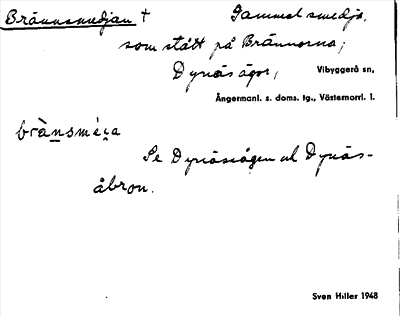 Brännsmedjan † Gammal smedja,
som stått på Brännorna;
Dynäs ägor, Vibyggerå sn,
Ångermanl. s. doms. tg., Västernorrl. l.
brànsmé̱ɩ̯a
Se Dynäsvägen ol Dynäs-
åbron.
Sven Hiller 1948